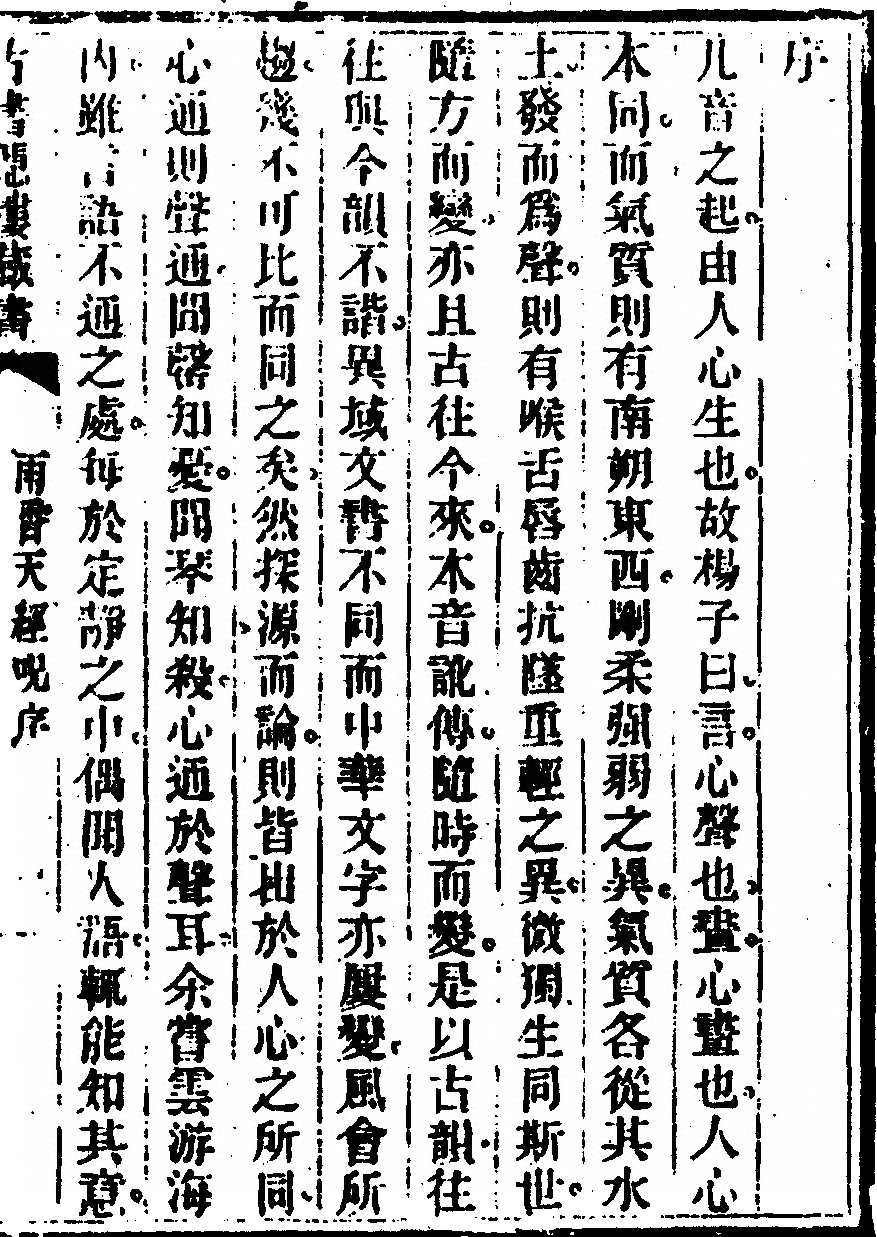 序
凡音之起由人心生也故楊子曰言心聲也畫心畫也人心
本同而氣質則有南朔東西剛柔强弱之異氣質各從其水
土發而為聲則有喉舌唇齒抗墜重輕之異微獨生同斯世
隨方而變亦且古往今來本音訛傳隨時而變是以古韻往
往與今韻不諧異域文書不同而中華文字亦屢變風會所
趨幾不可比而同之矣然探源而論則皆出於人心之所同
心通則聲通聞馨知愛聞琴知殺心通於聲耳余嘗雲游海
內雖言語不通之處每於定靜之中偶聞人語輒能知其意
雨香天經咒序